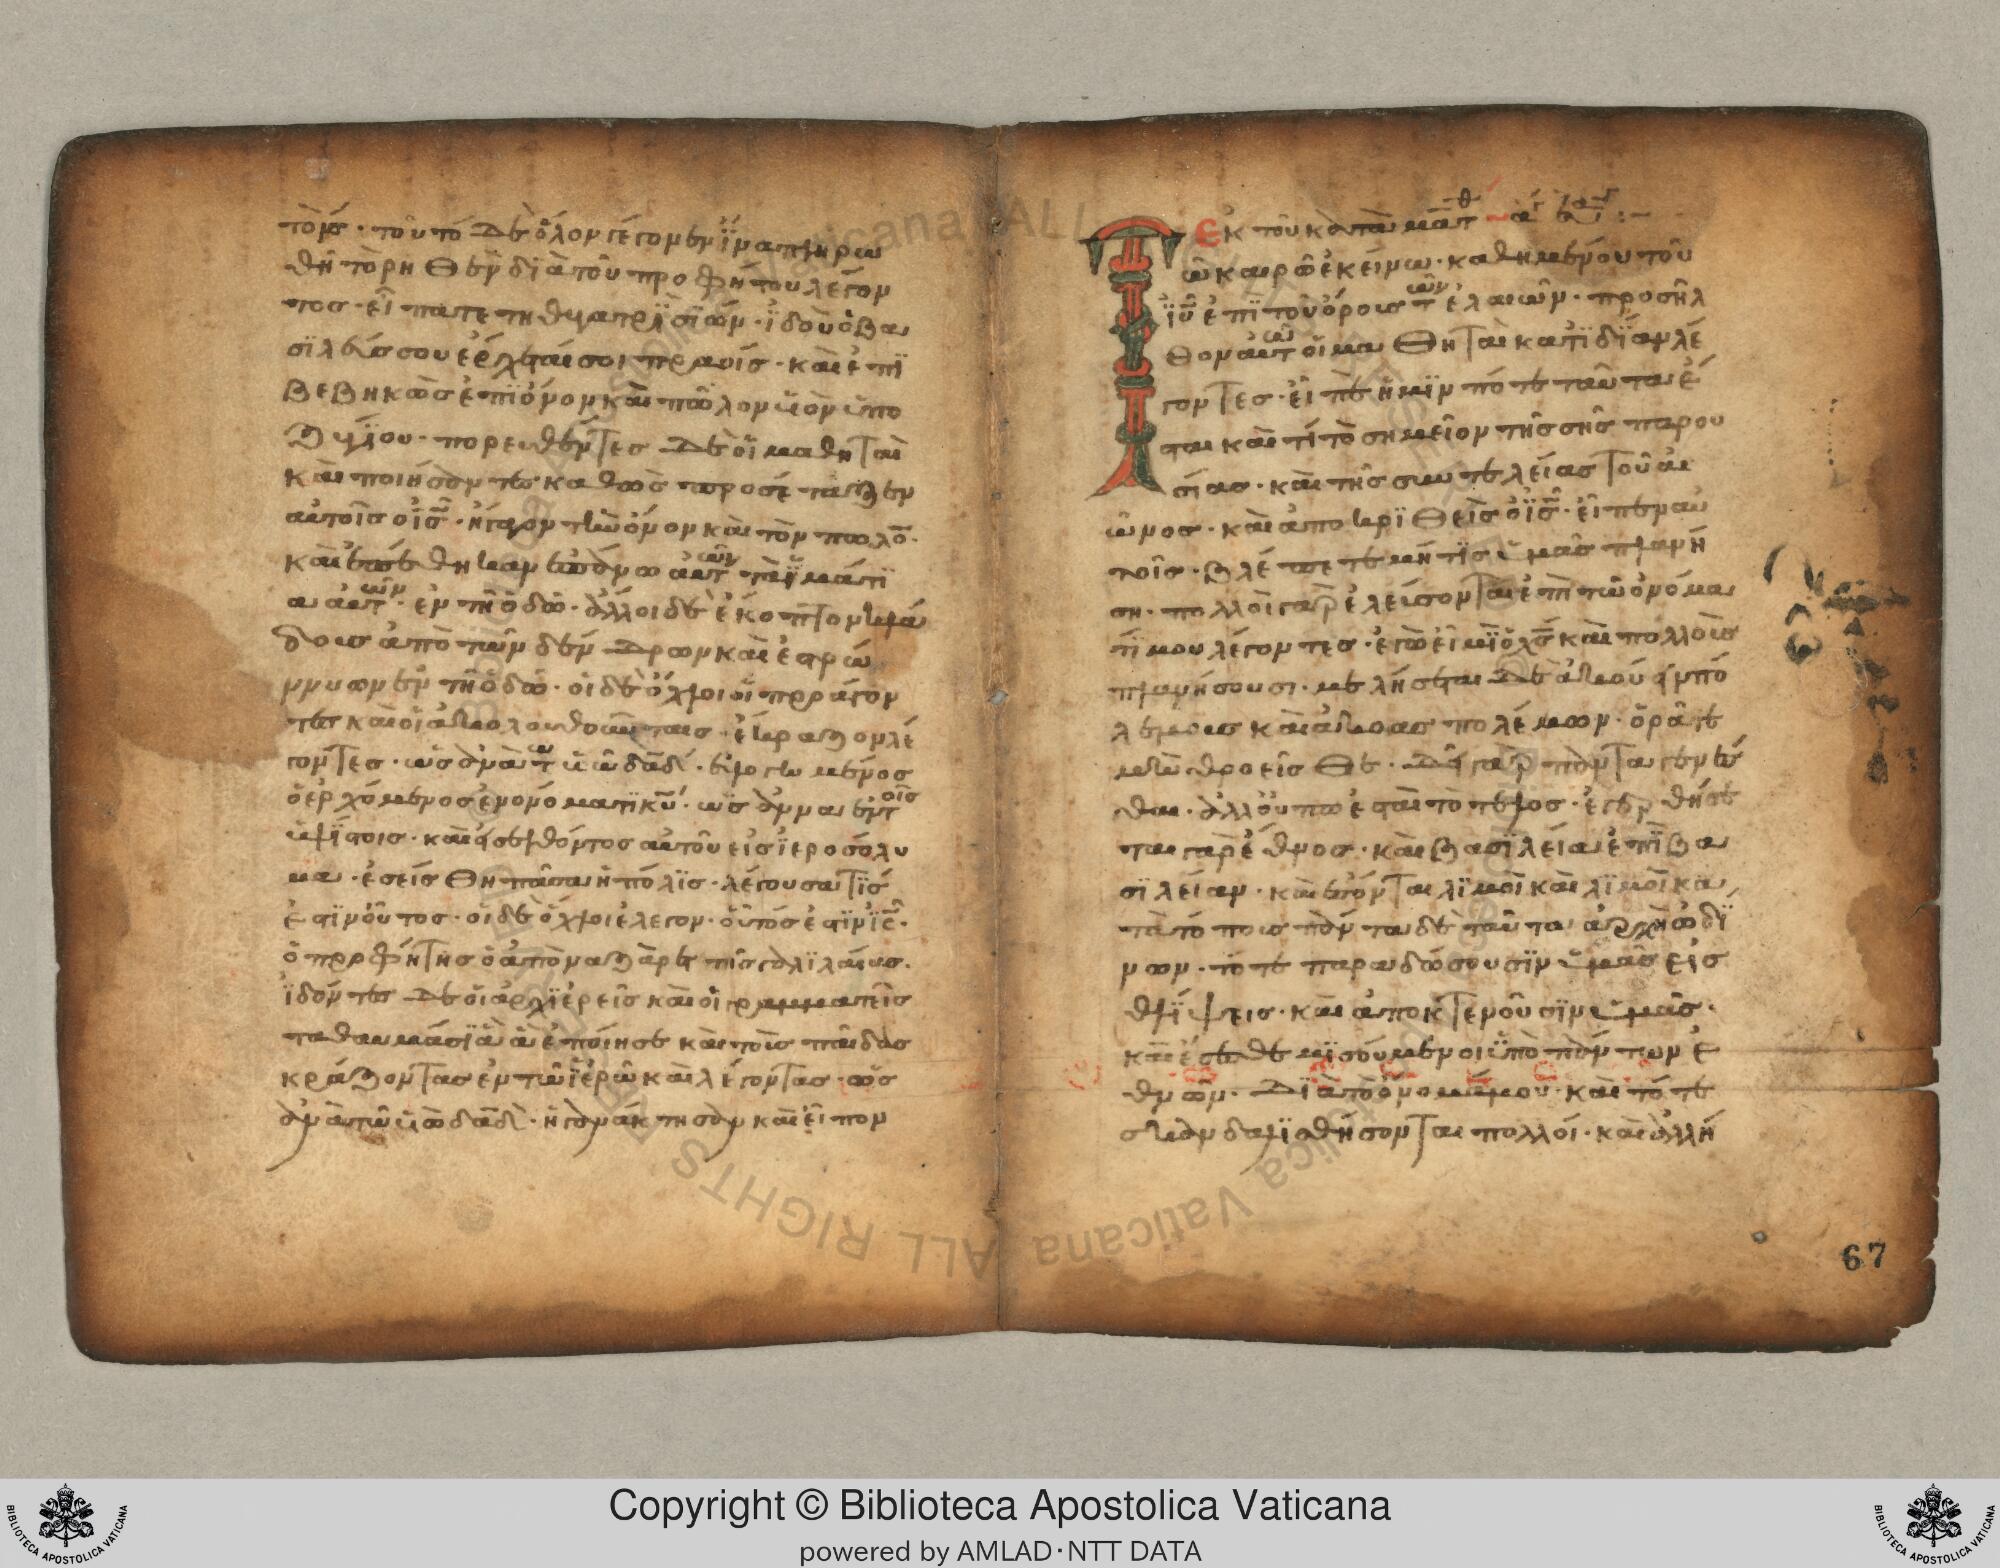 τούς · τοῦτο δὲ ὅλον γέγονεν ἵνα πληρω
θῆ τὸ ρηθὲν διὰ τοῦ προφήτου λέγον
τος · εἴπατε τῆ θυγατρὶ σιών · ἰδοὺ ὁ βα
σιλεύς σου ἔρχεταί σοι πραυίς · καὶ ἐπι
βεβηκὼς ἐπὶ ὄνον καὶ πῶλον υἱὸν ὑπο
ζυγίου · πορευθέντες δὲ οἱ μαθηταὶ
καὶ ποιήσαντες καθὼς προσέταξεν
αὐτοῖς ὁ ἰς · ἤγαγον τὴν ὄνον καὶ τὸν πῶλον ·
καὶ ἐπέθηκαν ἐπάνω αὐτῶν τὰ ἱμάτι
α αὐτῶν · ἐν τῆ ὁδῶ · ἄλλοι δὲ ἔκοπτον κλά
δους ἀπὸ τῶν δένδρων καὶ ἐστρώ
ννυων ἐν τῆ ὁδῶ · οἱ δὲ ὄχλοι οἱ προάγον
τες καὶ οἱ ἀκολουθοῦντες · ἔκραζον λέ
γοντες · ὡσαννὰ τῶ υἱῶ δαδ · εὐλογημένος
ὁ ἐρχόμενος ἐν ὀνόματι κυ · ὡσαννὰ ἐν τοῖς
ὑψίστοις · καὶ εἰσελθόντος αὐτοῦ εἰς ἱεροσόλυ
μα · ἐσείσθη πᾶσα ἡ πόλις · λέγουσα τίς
ἐστιν οὗτος · οἱ δὲ ὄχλοι ἔλεγον · οὗτός ἐστιν ις ·
ὁ προφήτης ὁ ἀπὸ ναζαρὲτ τῆς γαλιλαίας ·
ἰδόντες δὲ οἱ ἀρχιερεῖς καὶ οἱ γραμματεῖς
τα θαυμάσια ἃ ἐποίησε καὶ τοὺς παῖδας
κράζοντας ἐν τῶ ἱερῶ καὶ λέγοντας · ὡς
ἀνὰ τῶ υἱῶ δαδ · ἠγανάκτησαν καὶ εἶπον
Εκ τοῦ κατὰ ματθ
Τῶ καιρῶ ἐκείνω · καθημένου τοῦ
ιυ ἐπὶ τοῦ ὄρους τῶν ἐλαιῶν · προσῆλ
θον αὐτῶ οἱ μαθηταὶ κατ ἰδίαν λέ
γοντες · εἰπὲ ἡμῖν πότε ταῦτα ἔ
σται καὶ τί τὸ σημεῖον τῆς σῆς παρου
σίας · καὶ τῆς συντελείας τοῦ αἰ
ῶνος · καὶ ἀποκριθεὶς ὁ ἰς · εἶπεν αὐ
τοῖς · βλέπετε μή τις ὑμᾶς πλανή
ση · πολλοὶ γὰρ ἐλεύσονται ἐπὶ τῶ ὀνόμα
τί μου λέγοντες · ἐγώ εἰμι ὁ χς καὶ πολλοὺς
πλανήσουσι · μελήσεται δὲ ἀκούειν πο
λέμους καὶ ἀκοὰς πολέμων · ὁρᾶτε
μὴ θροεῖσθε · δεῖ γὰρ πάντα γενέσ
θαι · ἀλλ οὔπω ἐστὶ τὸ τέλος · ἐγερθήσε
ται γὰρ ἔθνος · καὶ βασιλεία ἐπὶ βα
σιλείαν · καὶ ἔσονται λιμοὶ καὶ λιμοὶ κα
τὰ τόπους πάντα δὲ ταῦτα ἀρχὴ ὠδί
νων · τότε παραδώσουσιν ὑμᾶς εἰς
θλίψεις · καὶ ἀποκτενοῦσιν ὑμᾶς ·
καὶ ἔσεσθε μισούμενοι ὑπὸ πάντων ἐ
θνῶν · διὰ τὸ ὄνομά μου · καὶ τότε
σκανδαλισθήσονται πολλοί · καὶ ἀλλή
67
Copyright © Biblioteca Apostolica Vaticana
powered by AMLAD·NTT DATA